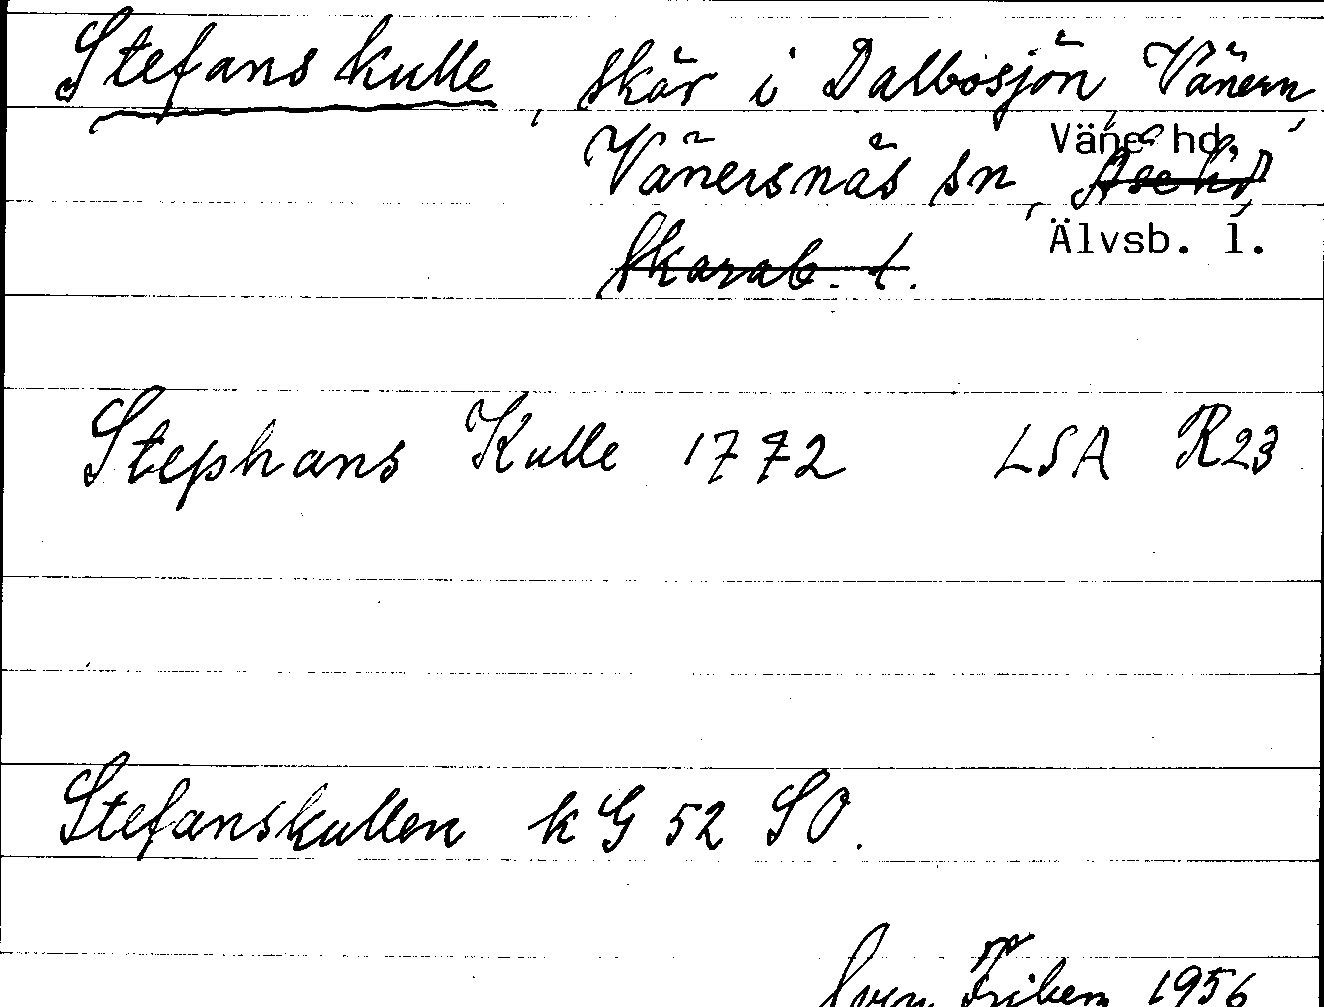 Stefanskulle, skär i Dalbosjön, Vänern,
Vänersnäs sn, Väne hd,
Åse hd,
Skarab. l. Älvsb. l.
Stephans Kulle 1772 LSA R23
Stefanskullen k G 52 SO.
Sven 1956